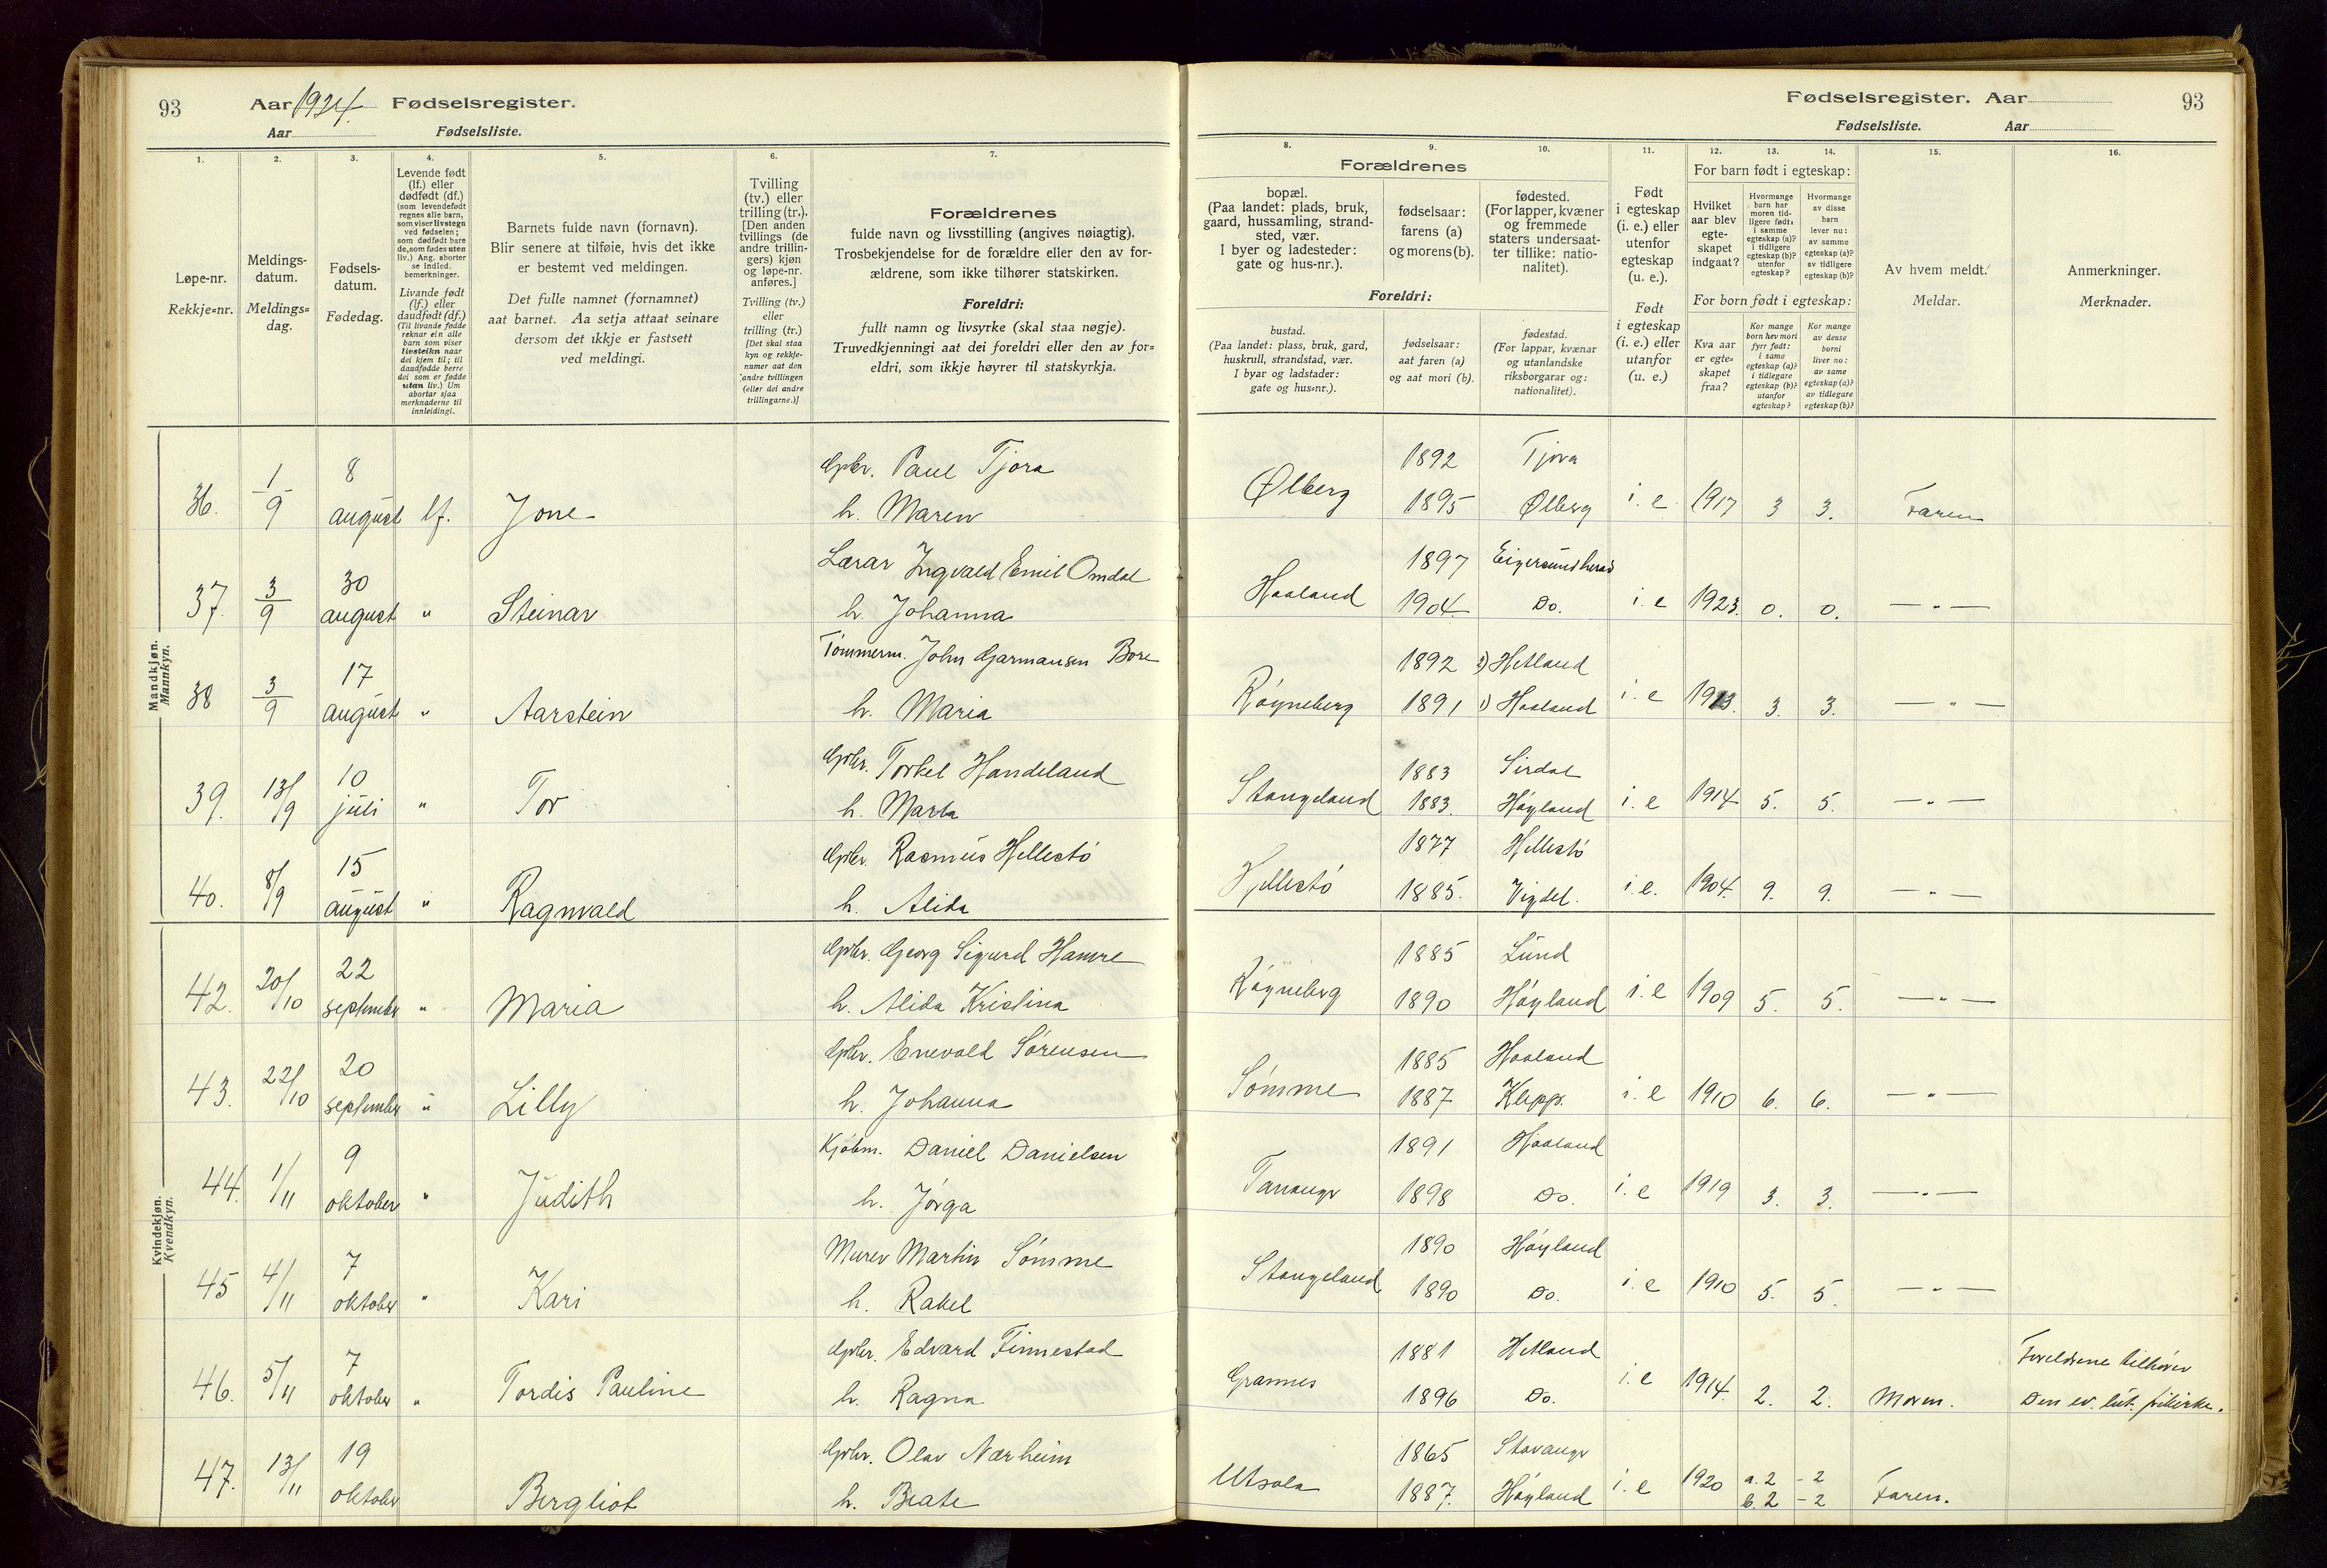 93 Aar 1924. Fødselsregister.
Aar Fødselsliste.
Fødselsregister. Aar 93
Fødselsliste. Aar
1. 2. 3. 4. 5. 6. 7. 8. 9. 10. 11. 12. 13. 14. 15. 16.
Løpe-nr.
Rekkje=nr.
Meldings-
datum.
Meldings=
dag.
Fødsels-
datum.
Fødedag.
Levende født
(lf.) eller
dødfødt (df.)
(som levendefødt
regnes alle barn,
som viser livstegn
ved fødselen;
som dødfødt bare
de, som fødes uten
liv.) Ang. aborter
se indled.
bemerkninger.
Livande født
(lf.) eller
daudfødt (df.)
(Til livande fødde
reknar ein alle
barn som viser
livsteikn naar
dei kjem til; til
daudfødde berre
dei som er fødde
utan liv.) Um
abortar sjaa
merknaderne til
innleidingi.
Barnets fulde navn (fornavn).
Blir senere at tilføie, hvis det ikke
er bestemt ved meldingen.
Det fulle namnet (fornamnet)
aat barnet. Aa setja attaat seinare
dersom det ikkje er fastsett
ved meldingi.
Tvilling
(tv.) eller
trilling (tr.).
[Den anden
tvillings (de
andre trillin-
gers) kjøn
og løpe-nr.
anføres.]
Tvilling (tv.)
eller
trilling (tr.)
[Det skal staa
kyn og rekkje-
numer aat den
andre tvillingen
(eller dei andre
trillingarne.)]
Forældrenes
fulde navn og livsstilling (angives nøiagtig).
Trosbekjendelse for de forældre eller den av for-
ældrene, som ikke tilhører statskirken.
Foreldri:
fullt namn og livsyrke (skal staa nøgje).
Truvedkjenningi aat dei foreldri eller den av for=
eldri, som ikkje høyrer til statskyrkja.
Forældrenes
bopæl.
(Paa landet: plads, bruk,
gaard, hussamling, strand-
sted, vær.
I byer og ladesteder:
gate og hus-nr.).
fødselsaar:
farens (a)
og morens (b).
fødested.
(For lapper, kvæner
og fremmede
staters undersaat-
ter tillike: natio-
nalitet).
Foreldri:
bustad.
(Paa landet: plass, bruk, gard,
huskrull, strandstad, vær.
I byar og ladstader:
gate og hus=nr.).
fødselsaar:
aat faren (a)
og aat mori (b).
fødestad.
(For lappar, kvænar
og utanlandske
riksborgarar og:
nationalitet).
Født
i egteskap
(i. e.) eller
utenfor
egteskap
(u. e.).
Født
i egteskap
(i. e.) eller
utanfor
(u. e.)
For barn født i egteskap:
Hvilket
aar blev
egte-
skapet
indgaat?
Hvormange
barn har
moren tid-
ligere født:
i samme
egteskap (a)?
i tidligere
egteskap (b)?
utenfor
egteskap?
Hvormange
av disse
barn
lever nu:
av samme
egteskap (a)?
av tidligere
egteskap (b)?
For born født i egteskap:
Kva aar
er egte=
skapet
fraa?
Kor mange
born hev mori
fyrr født:
i same
egteskap (a)?
i tidlegare
egteskap (b)?
utanfor
egteskap?
Kor mange
av desse
borni
liver no:
av same
egteskap (a)?
av tidlegare
egteskap (b)?
Av hvem meldt.
Meldar.
Anmerkninger.
Merknader.
Mandkjøn.
Mannkyn.
36. 1/9 8 august lf. Jone Gbr. Paul Tjora h. Maren Ølberg 1892 Tjora 1895 Ølberg i. e 1917 3 3. Faren
37. 3/9 30 august " Steinar Lærar Ingvald Emil Omdal h. Johanna Haaland 1897 Eigersundherad 1904 Do. i. e 1923. 0. 0. — " —
38 3/9 17 august " Aarstein Tømmerm. John Garmansen Bore h. Maria Røyneberg 1892 2) Hetland 1891 1) Haaland i. e 1913. 3. 3. — " —
39. 13/9 10 juli " Tor Gbr. Torkel Handeland h. Marta Stangeland 1883 Sirdal 1883. Høyland i. e 1914 5. 5. — " —
40. 8/9 15 august " Ragnvald Gbr. Rasmus Hellestø h. Alida Hellestø 1877 Hellestø 1885. Vigdel. i. e. 1904. 9. 9. — " —
Kvindekjøn.
Kvendkyn.
42. 20/10 22 september " Maria Gbr. Georg Sigurd Hamre h. Alida Kristina Røyneberg 1885 Lund 1890 Høyland i. e 1909 5. 5. — " —
43. 22/10 20 september " Lilly Gbr. Enevald Sørensen h. Johanna Sømme 1885 Haaland 1887 Klepp. i. e 1910 6. 6. — " —
44. 1/11 9 oktober " Judith Kjøbm. Daniel Danielsen h. Jørga Tananger 1891 Haaland 1898 Do. i. e 1919 3. 3. — " —
45 4/11 7 oktober " Kari Murer Martin Sømme h. Rakel Stangeland 1890 Høyland 1890 Do. i. e 1910 5. 5. — " —
46. 5/11 7 oktober " Tordis Pauline Gbr. Edvard Finnestad h. Ragna Grannes 1881 Hetland 1896 Do. i. e 1914. 2. 2. Moren. Foreldrene tilhører Den ev. lut. frikirke.
47. 13/11 19 oktober Bergliot Gbr. Olav Nærheim h. Beate Utsola 1865 Stavanger 1887. Høyland i. e 1920 a. 2 - 2 b. 2 - 2 Faren.